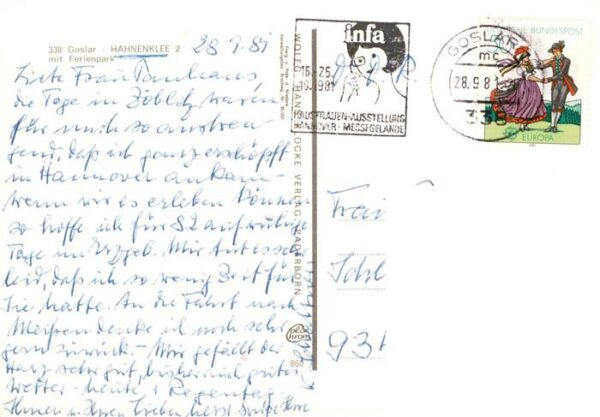 338 Goslar - HAHNENKLEE 2
mit Ferienpark
28.9.81
Liebe Frau Tauhaus,
die Tage in Zöblitz waren
für mich so anstren
gend, daß ich ganz erschöpft
in Hannover ankam -
wenn wir es erleben können
so hoffe ich für 82 auf ruhige
Tage im Erzgeb. Mir tut es sehr
leid, daß ich so wenig Zeit für
Sie hatte. An die Fahrt nach
Meißen denke ich noch sehr
gern zurück. - Mir gefällt der
Harz sehr gut, bisher nur gutes
Wetter - heute 1 Regentag.
Ihnen u. Ihren Lieben herzl. Grüße Ihre
WOLFGANG LOCKE VERLAG, PADERBORN
infa
10.1981
HAUSFRAUEN-AUSSTELLUNG
HANNOVER - MESSEGELÄNDE
GOSLAR
mc
28.9.8
338
DEUTSCHE BUNDESPOST
EUROPA
D D R
Frau
Schl
93